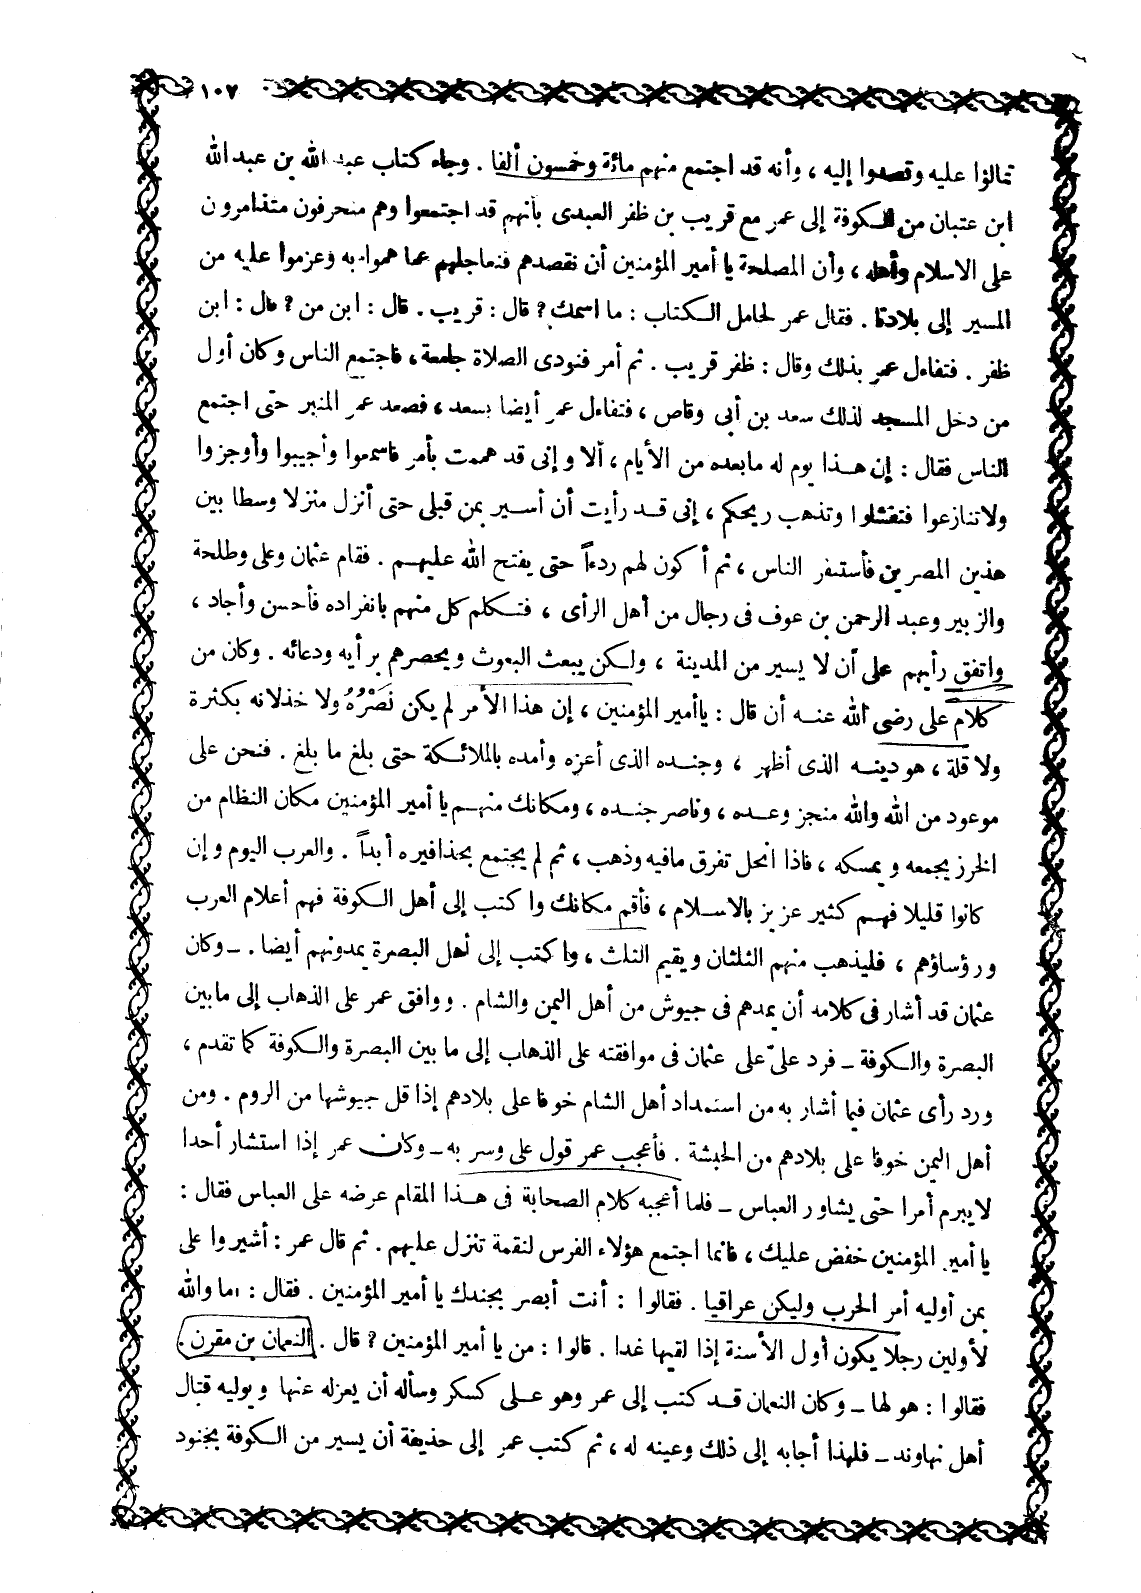 ١٠٧
تمالؤا عليه وقصدوا إليه ، وأنه قد اجتمع منهم مائة وخمسون ألفا . وجاء كتاب عبد الله بن عبد الله
ابن عتبان من الكوفة إلى عمر مع قريب بن ظفر العبدى بأنهم قد اجتمعوا وهم منحرفون متذامرون
على الاسلام وأهله ، وأن المصلحة يا أمير المؤمنين أن نقصدهم فنعاجلهم عما هموا به وعزموا عليه من
المسير إلى بلادنا . فقال عمر لحامل الكتاب : ما اسمك ? قال : قريب . قال : ابن من ? قال : ابن
ظفر . فتفاءل عمر بذلك وقال : ظفر قريب . ثم أمر فنودى الصلاة جامعة ، فاجتمع الناس وكان أول
من دخل المسجد لذلك سعد بن أبى وقاص ، فتفاءل عمر أيضا بسعد ، فصعد عمر المنبر حتى اجتمع
الناس فقال : إن هذا يوم له مابعده من الأيام ، ألا و إنى قد هممت بأمر فاسمعوا وأجيبوا وأوجزوا
ولاتنازعوا فتفشلوا وتذهب ريحكم ، إنى قد رأيت أن أسير بمن قبلى حتى أنزل منزلا وسطا بين
هذين المصرين فأستنفر الناس ، ثم أكون لهم ردءاً حتى يفتح الله عليهم . فقام عثمان وعلى وطلحة
والزبير وعبد الرحمن بن عوف فى رجال من أهل الرأى ، فتكلم كل منهم بانفراده فأحسن وأجاد ،
واتفق رأيهم على أن لا يسير من المدينة ، ولكن يبعث البعوث ويحصرهم برأيه ودعائه . وكان من
كلام على رضى الله عنه أن قال : ياأمير المؤمنين ، إن هذا الأمر لم يكن نَصْرُهُ ولا خذلانه بكثرة
ولا قلة ، هو دينه الذى أظهر ، وجنده الذى أعزه وأمده بالملائكة حتى بلغ ما بلغ . فنحن على
موعود من الله والله منجز وعده ، وناصر جنده ، ومكانك منهم يا أمير المؤمنين مكان النظام من
الخرز يجمعه و يمسكه ، فاذا انحل تفرق مافيه وذهب ، ثم لم يجتمع بحذافيره أبداً . والعرب اليوم و إن
كانوا قليلا فهم كثير عزيز بالاسلام ، فأقم مكانك واكتب إلى أهل الكوفة فهم أعلام العرب
ورؤساؤهم ، فليذهب منهم الثلثان ويقيم الثلث ، واكتب إلى أهل البصرة يمدونهم أيضا . ــ وكان
عثمان قد أشار فى كلامه أن يمدهم فى جيوش من أهل اليمن والشام . ووافق عمر على الذهاب إلى مابين
البصرة والكوفة ــ فرد علىّ على عثمان فى موافقته على الذهاب إلى ما بين البصرة والكوفة كما تقدم ،
ورد رأى عثمان فيما أشار به من استمداد أهل الشام خوفا على بلادهم إذا قل جيوشها من الروم . ومن
أهل اليمن خوفا على بلادهم من الحبشة . فأعجب عمر قول على وسر به ــ وكان عمر إذا استشار أحدا
لايبرم أمرا حتى يشاور العباس ــ فلما أعجبه كلام الصحابة فى هذا المقام عرضه على العباس فقال :
يا أمير المؤمنين خفض عليك ، فانما اجتمع هؤلاء الفرس لنقمة تنزل عليهم . ثم قال عمر : أشيروا على
بمن أوليه أمر الحرب وليكن عراقيا . فقالوا : أنت أبصر بجندك يا أمير المؤمنين . فقال : اما والله
لأولين رجلا يكون أول الأسنة إذا لقيها غدا . قالوا : من يا أمير المؤمنين ? قال . النعمان بن مقرن .
فقالوا : هو لها ــ وكان النعمان قد كتب إلى عمر وهو على كسكر وسأله أن يعزله عنها ويوليه قتال
أهل نهاوند ــ فلهذا أجابه إلى ذلك وعينه له ، ثم كتب عمر إلى حذيفة أن يسير من الكوفة بجنود